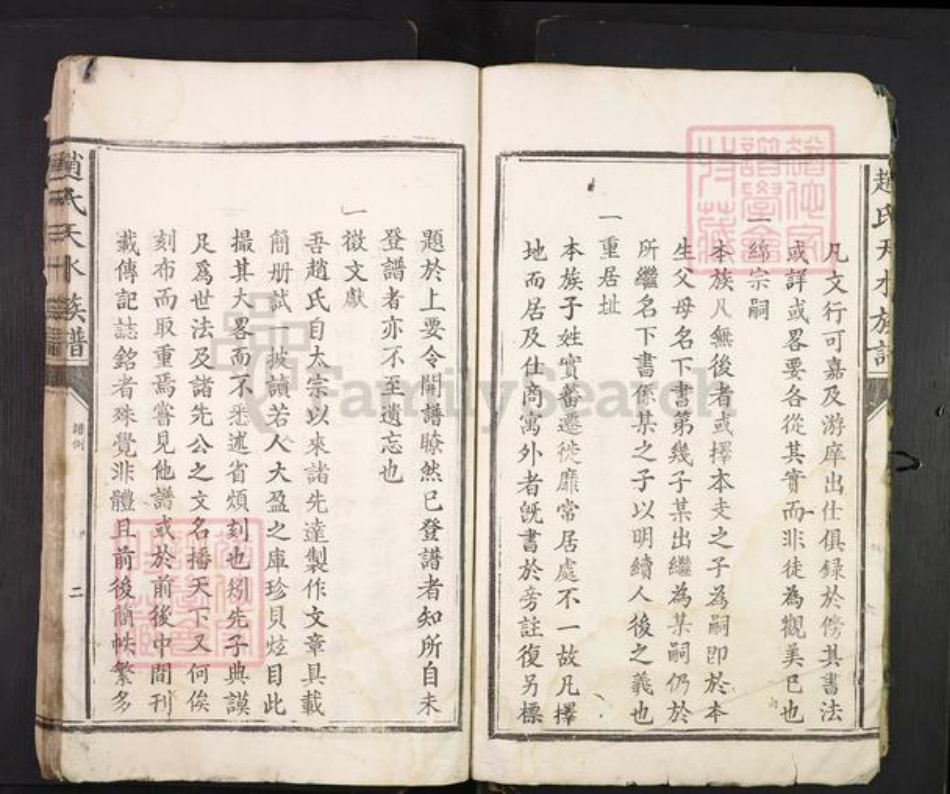 趙氏天水族譜
凡文行可嘉及游庠出仕俱録於傍其書法
或詳或畧要各從其實而非徒為觀美已也
一綿宗嗣
本族凡無後者或擇本支之子為嗣即於本
生父母名下書第幾子某出繼為某嗣仍於
所繼名下書係某之子以明續人後之義也
一重居址
本族子姓實蕃遷徙靡常居處不一故凡擇
地而居及仕商寓外者旣書於旁註復另標
題於上要令開譜瞭然已登譜者知所自未
登譜者亦不至遺忘也
一徵文獻
吾趙氏自太宗以來諸先達製作文章具載
簡册試一披讀若人大盈之庫珍貝炫目此
撮其大畧而不悉述省煩刻也矧先子典謨
足爲世法及諸先公之文名播天下又何俟
刻布而取重焉嘗見他譜或於前後中間刊
載傳記誌銘者殊覺非體且前後簡帙繁多
趙氏天水族譜
譜例
二
FamilySearch